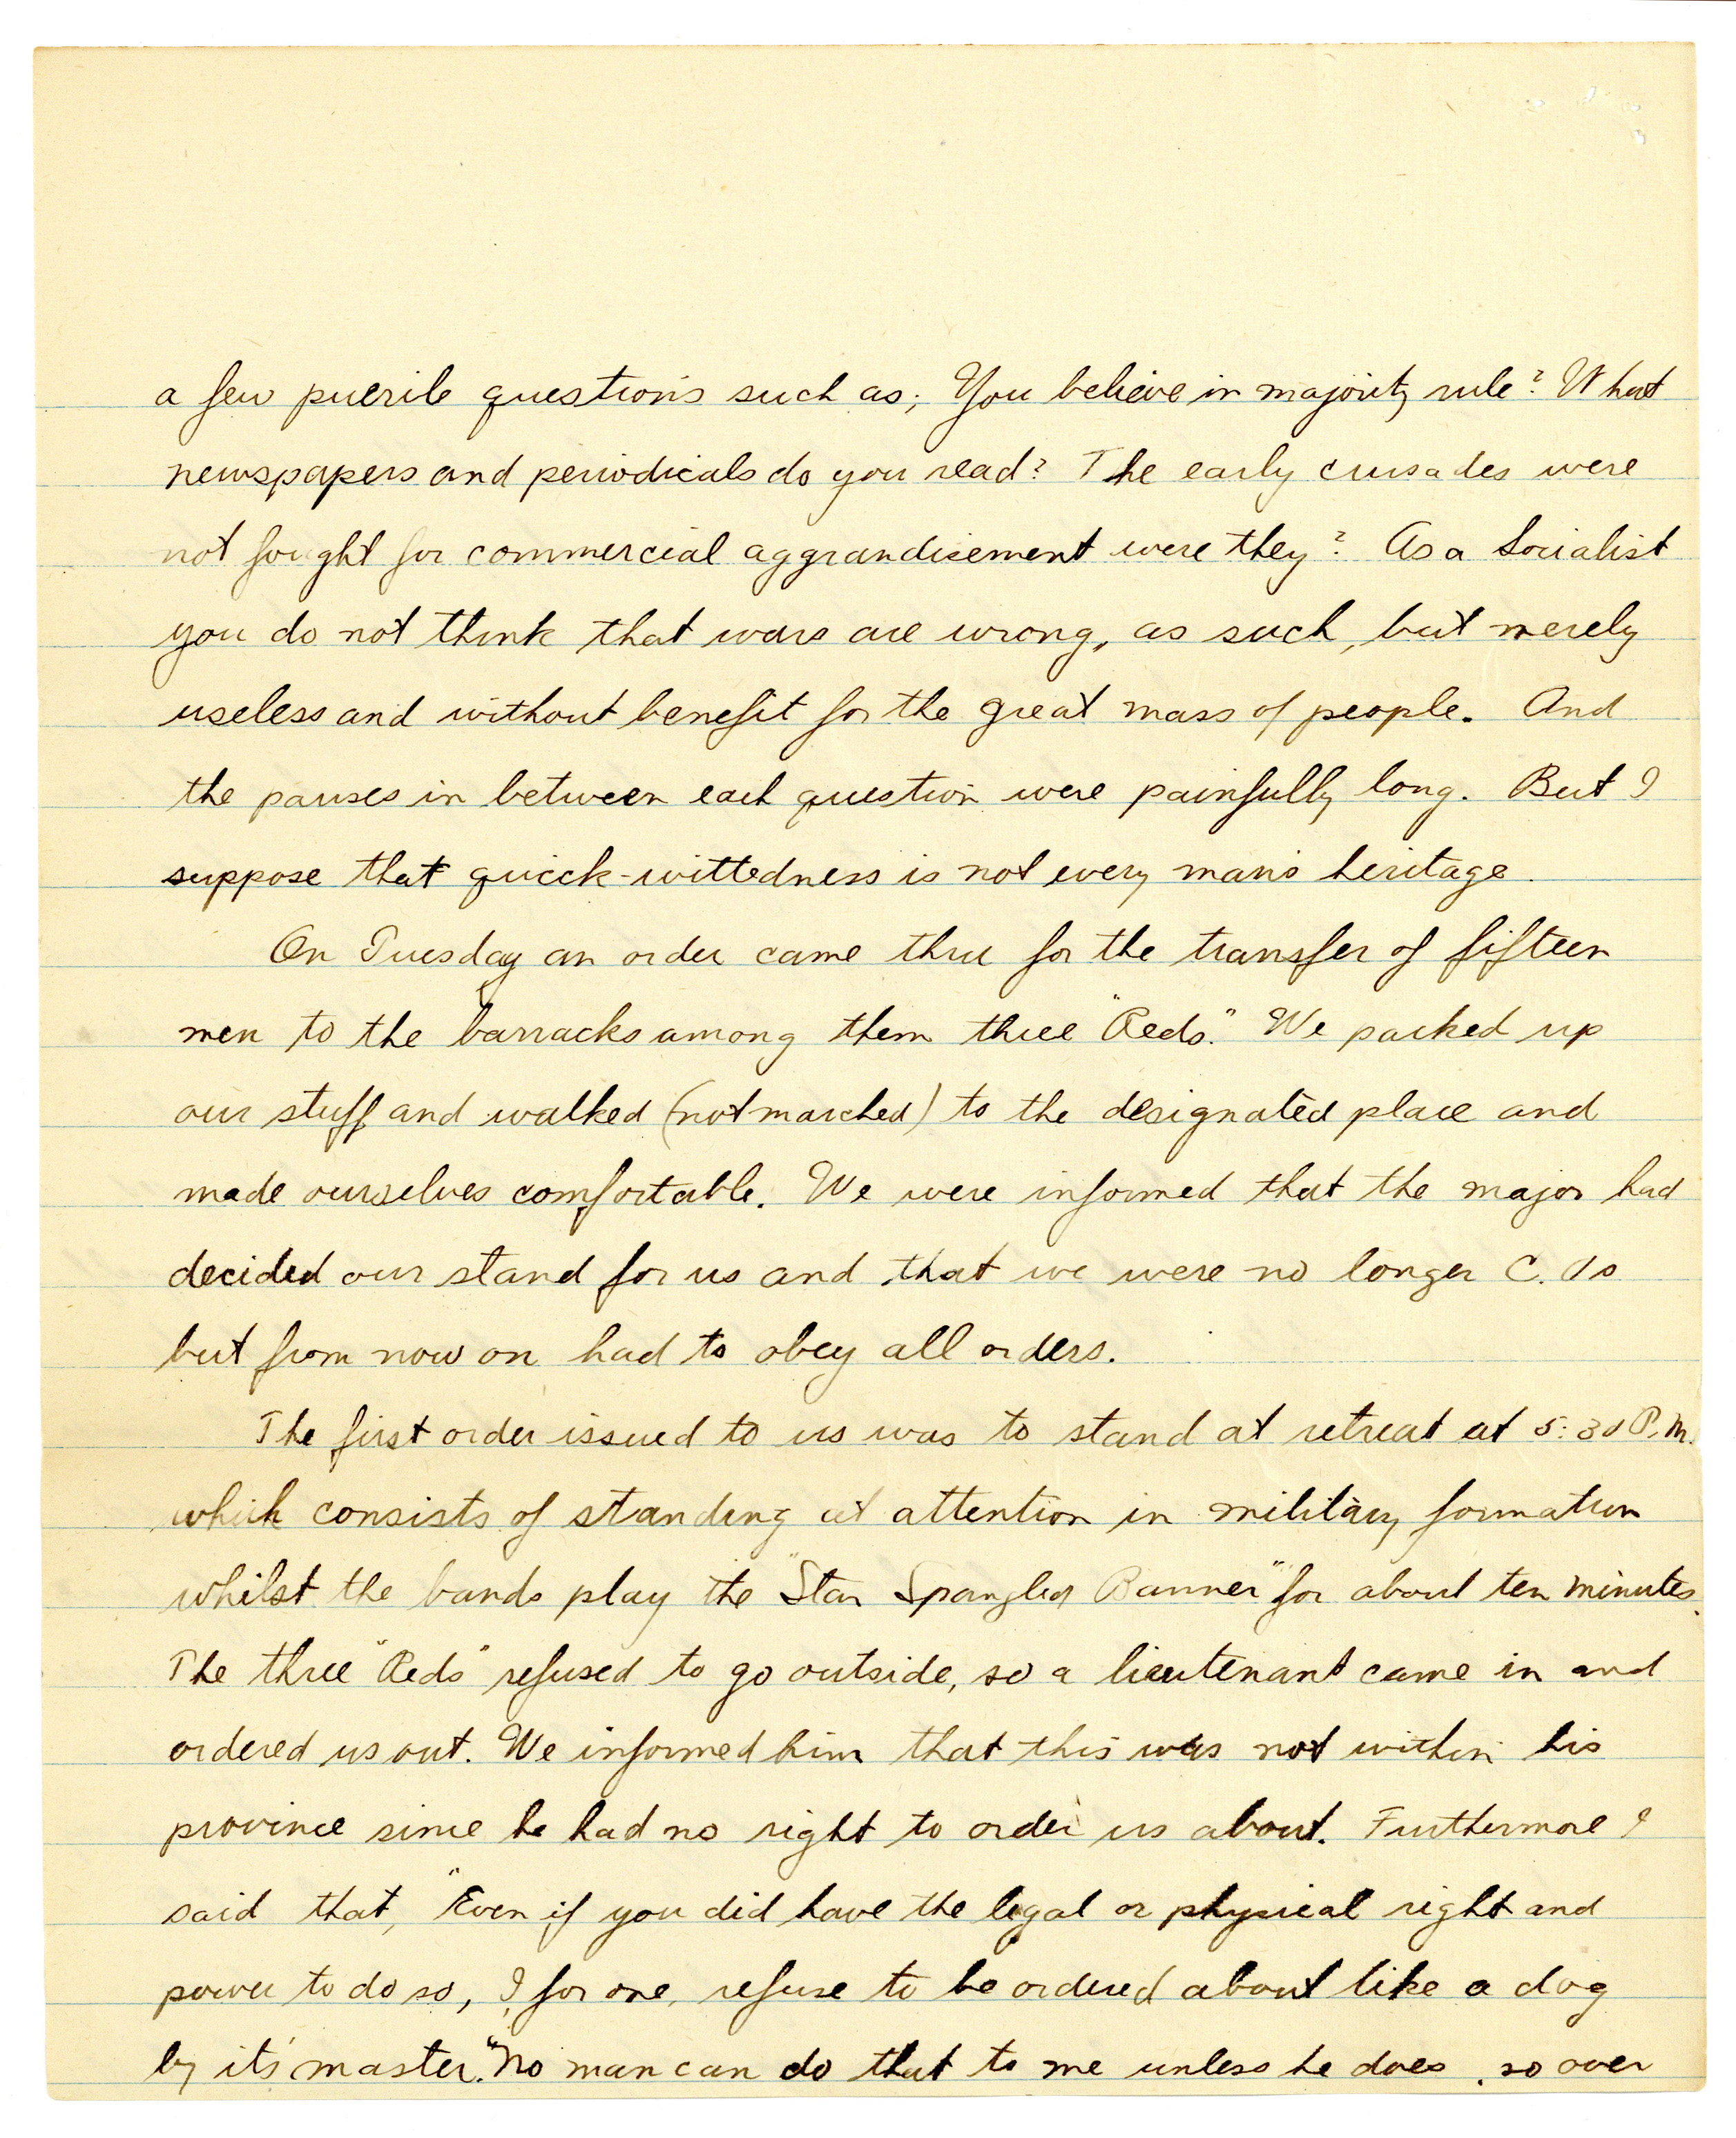 a few puerile questions such as; You believe in majority rule? What
newspapers and periodicals do you read? The early crusades were
not fought for commercial aggrandisement were they? As a Socialist
you do not think that wars are wrong, as such, but merely
useless and without benefit for the great mass of people. And
the pauses in between each question were painfully long. But I
suppose that quick-wittedness is not every man's heritage.
On Tuesday an order came thru for the transfer of fifteen
men to the barracks among them three "Reds." We packed up
our stuff and walked (not marched) to the designated place and
made ourselves comfortable. We were informed that the major had
decided our stand for us and that we were no longer C.Os
but from now on had to obey all orders.
The first order issued to us was to stand at retreat at 5:30 P.M.
which consists of standing at attention in military formation
whilst the bands play the "Star Spangled Banner" for about ten minutes.
The three "Reds" refused to go outside, so a lieutenant came in and
ordered us out. We informed him that this was not within his
province since he had no right to order us about. Furthermore I
said that, "Even if you did have the legal or physical right and
power to do so, I for one, refuse to be ordered about like a dog
by it's master." "No man can do that to me unless he does so over